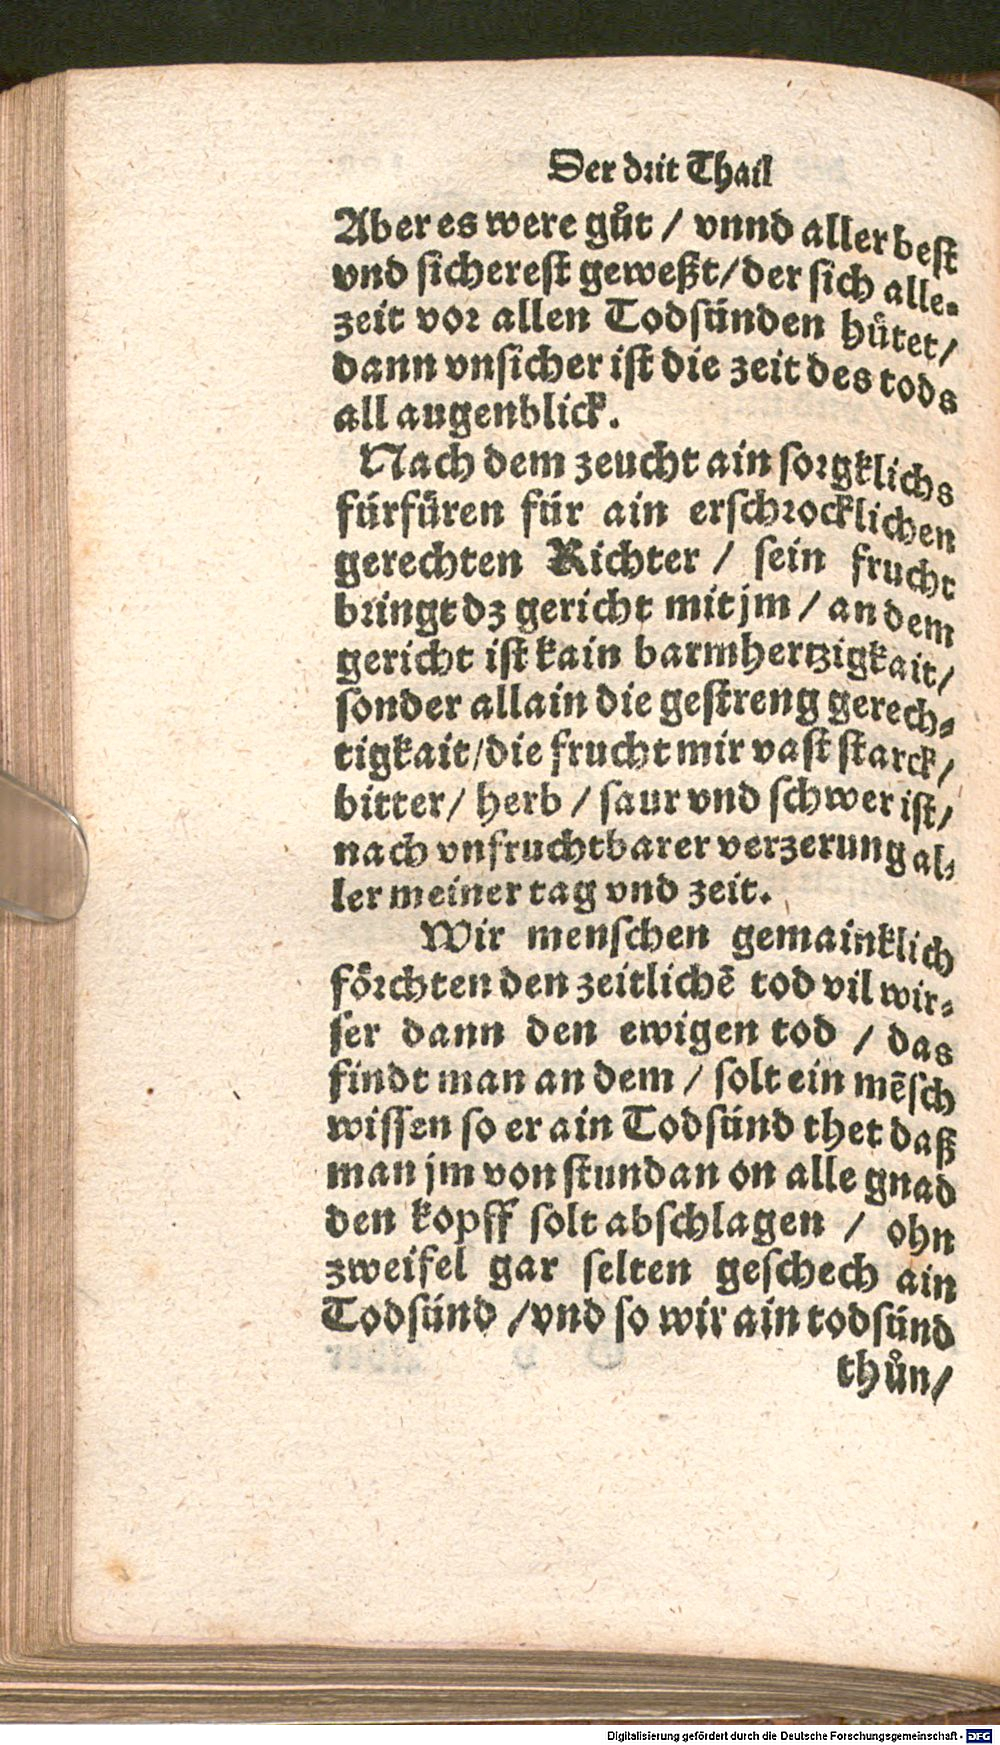 Der drit Thail
Aber es were gůt / vnnd aller best
vnd sicherest geweßt / der sich alle-
zeit vor allen Todsünden hůtet /
dann vnsicher ist die zeit des tods
all augenblick.
Nach dem zeucht ain sorgklichs
fürfüren für ain erschrocklichen
gerechten Richter / sein frucht
bringt dz gericht mit jm / an dem
gericht ist kain barmhertzigkait /
sonder allain die gestreng gerech-
tigkait / die frucht mir vast starck /
bitter / herb / saur vnd schwer ist /
nach vnfruchtbarer verzerung al-
ler meiner tag vnd zeit.
Wir menschen gemainklich
förchten den zeitlichē tod vil wir-
ser dann den ewigen tod / das
findt man an dem / solt ein mēsch
wissen so er ain Todsünd thet daß
man jm von stund an on alle gnad
den kopff solt abschlagen / ohn
zweifel gar selten geschech ain
Todsünd / vnd so wir ain todsünd
thůn /
Digitalisierung gefördert durch die Deutsche Forschungsgemeinschaft - DFG